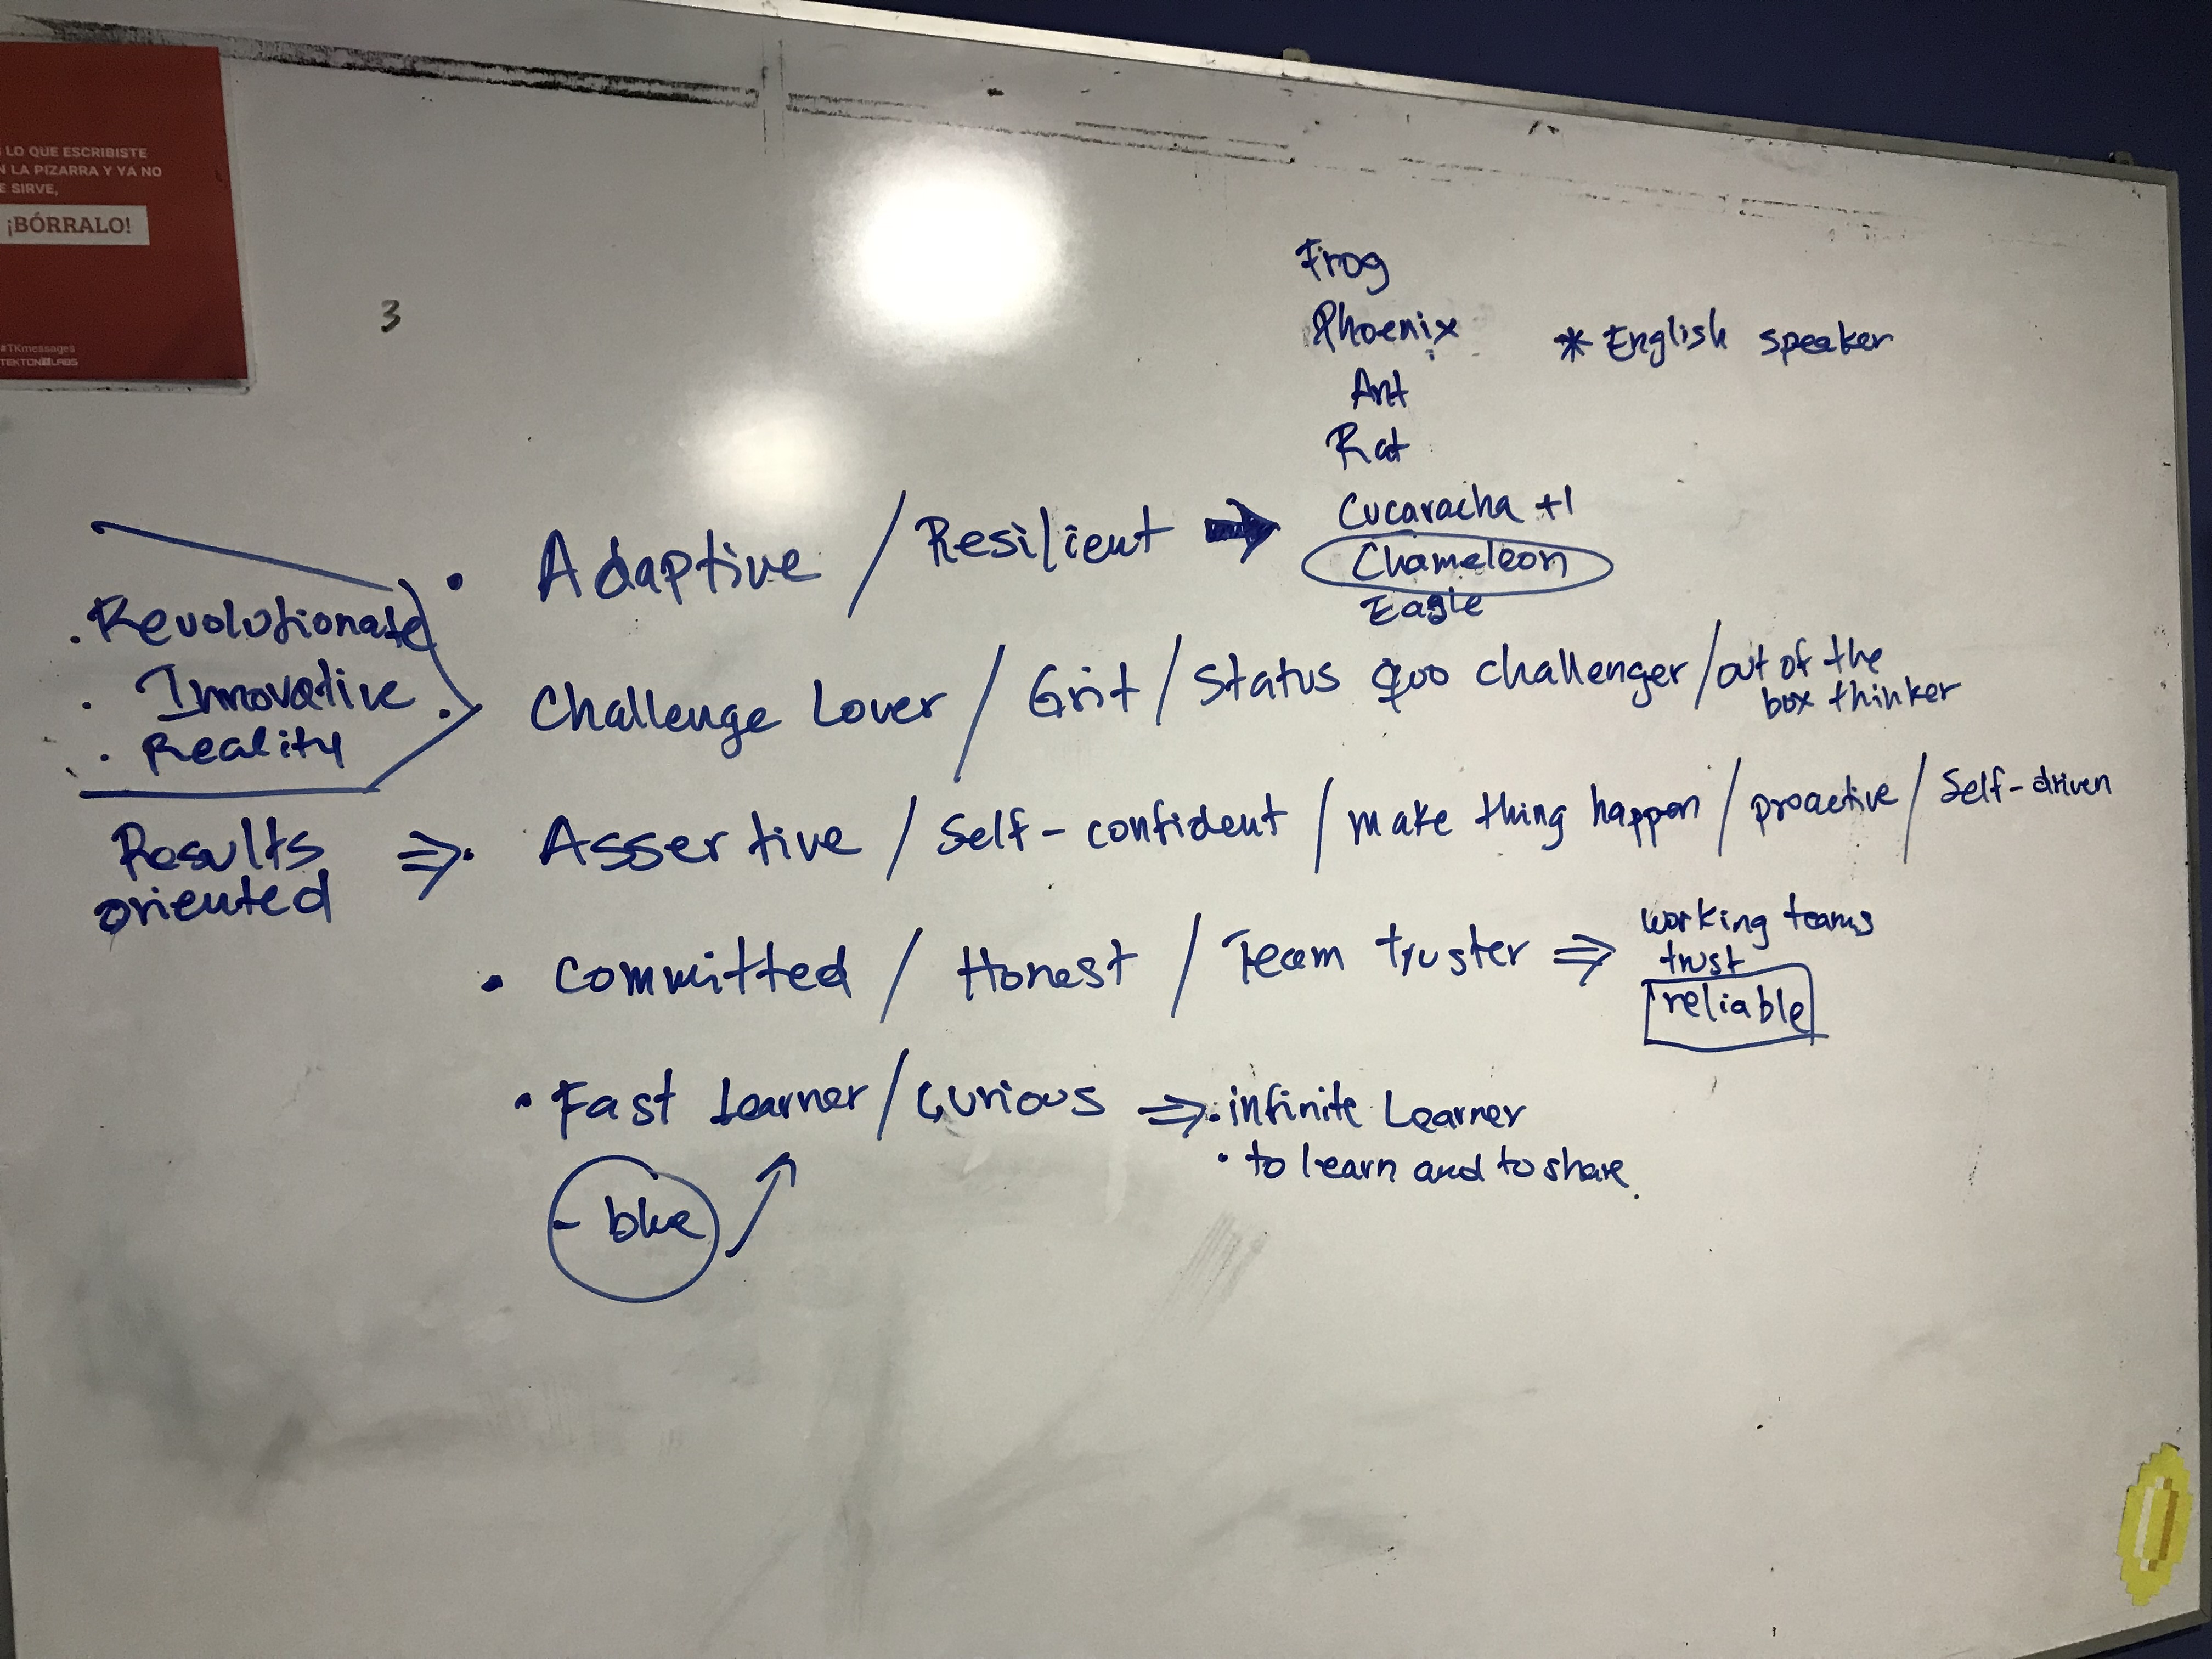 LO QUE ESCRIBISTE
LA PIZARRA Y YA NO
SIRVE,
¡BÓRRALO!
#TKmessages
TEKTON LABS
3
Frog
Phoenix
* English speaker
Ant
Rat
Cucaracha +1
Chameleon
Eagle
• Adaptive / Resilient
. Revolutionate
. Innovative
. Reality
. Challenge Lover / Grit / Status quo challenger / out of the
box thinker
Results
oriented
⇒ • Assertive / Self-confident / make thing happen / proactive / Self-driven
• Committed / Honest / Team truster ⇒
working teams
trust
reliable
• Fast Learner / Curious ⇒ • infinite Learner
• to learn and to share
- blue